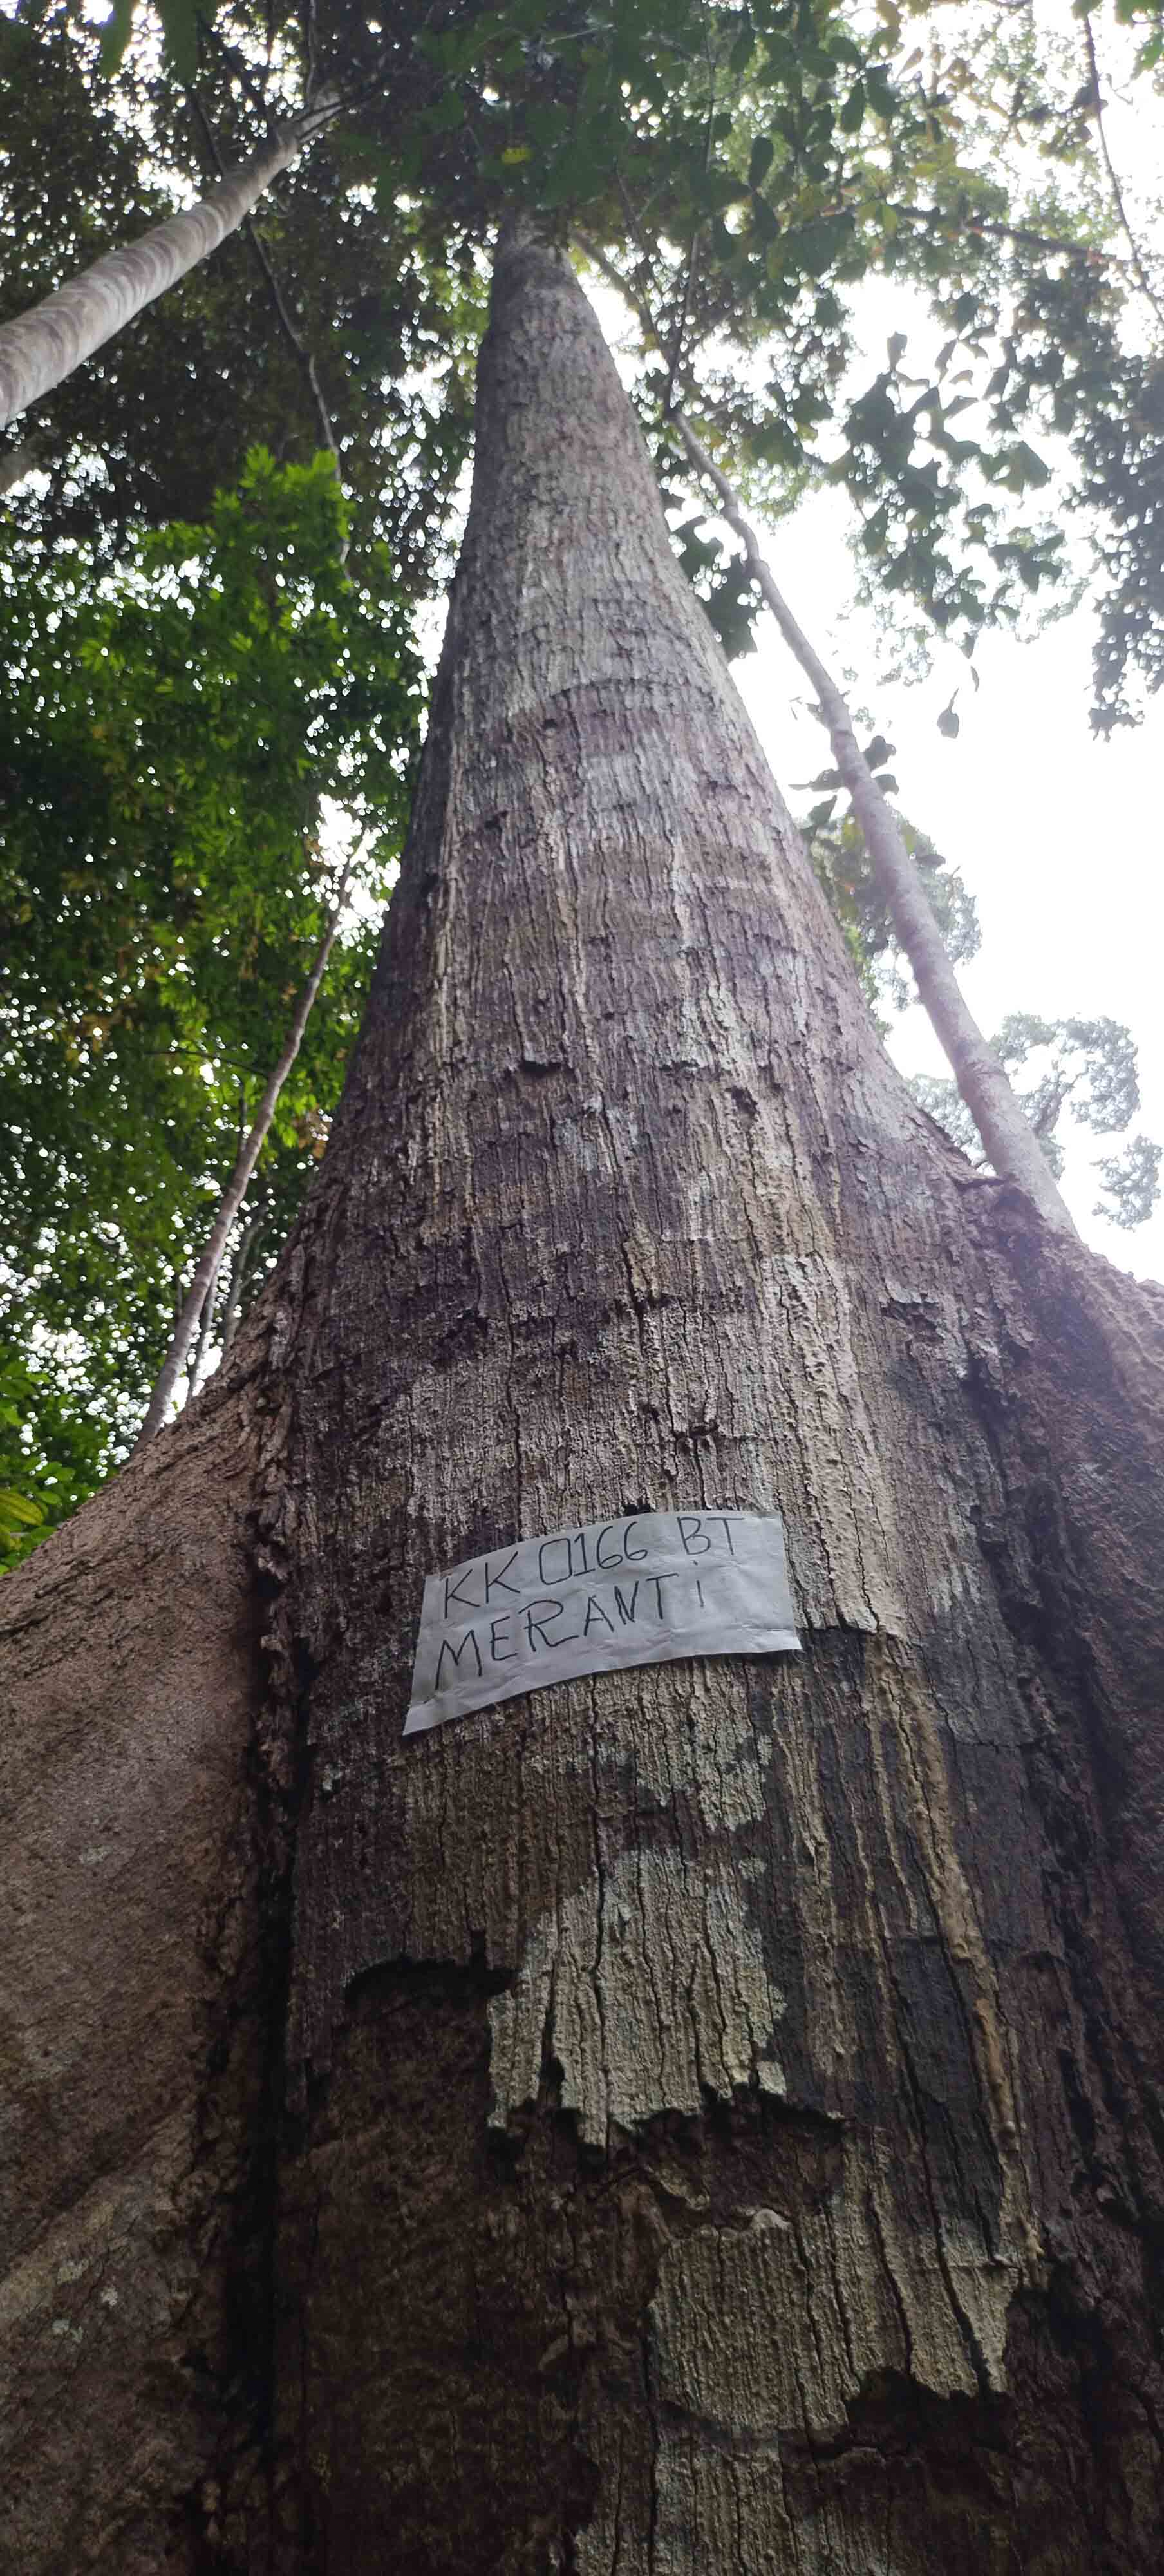 KK 0166 BT
MERANTI